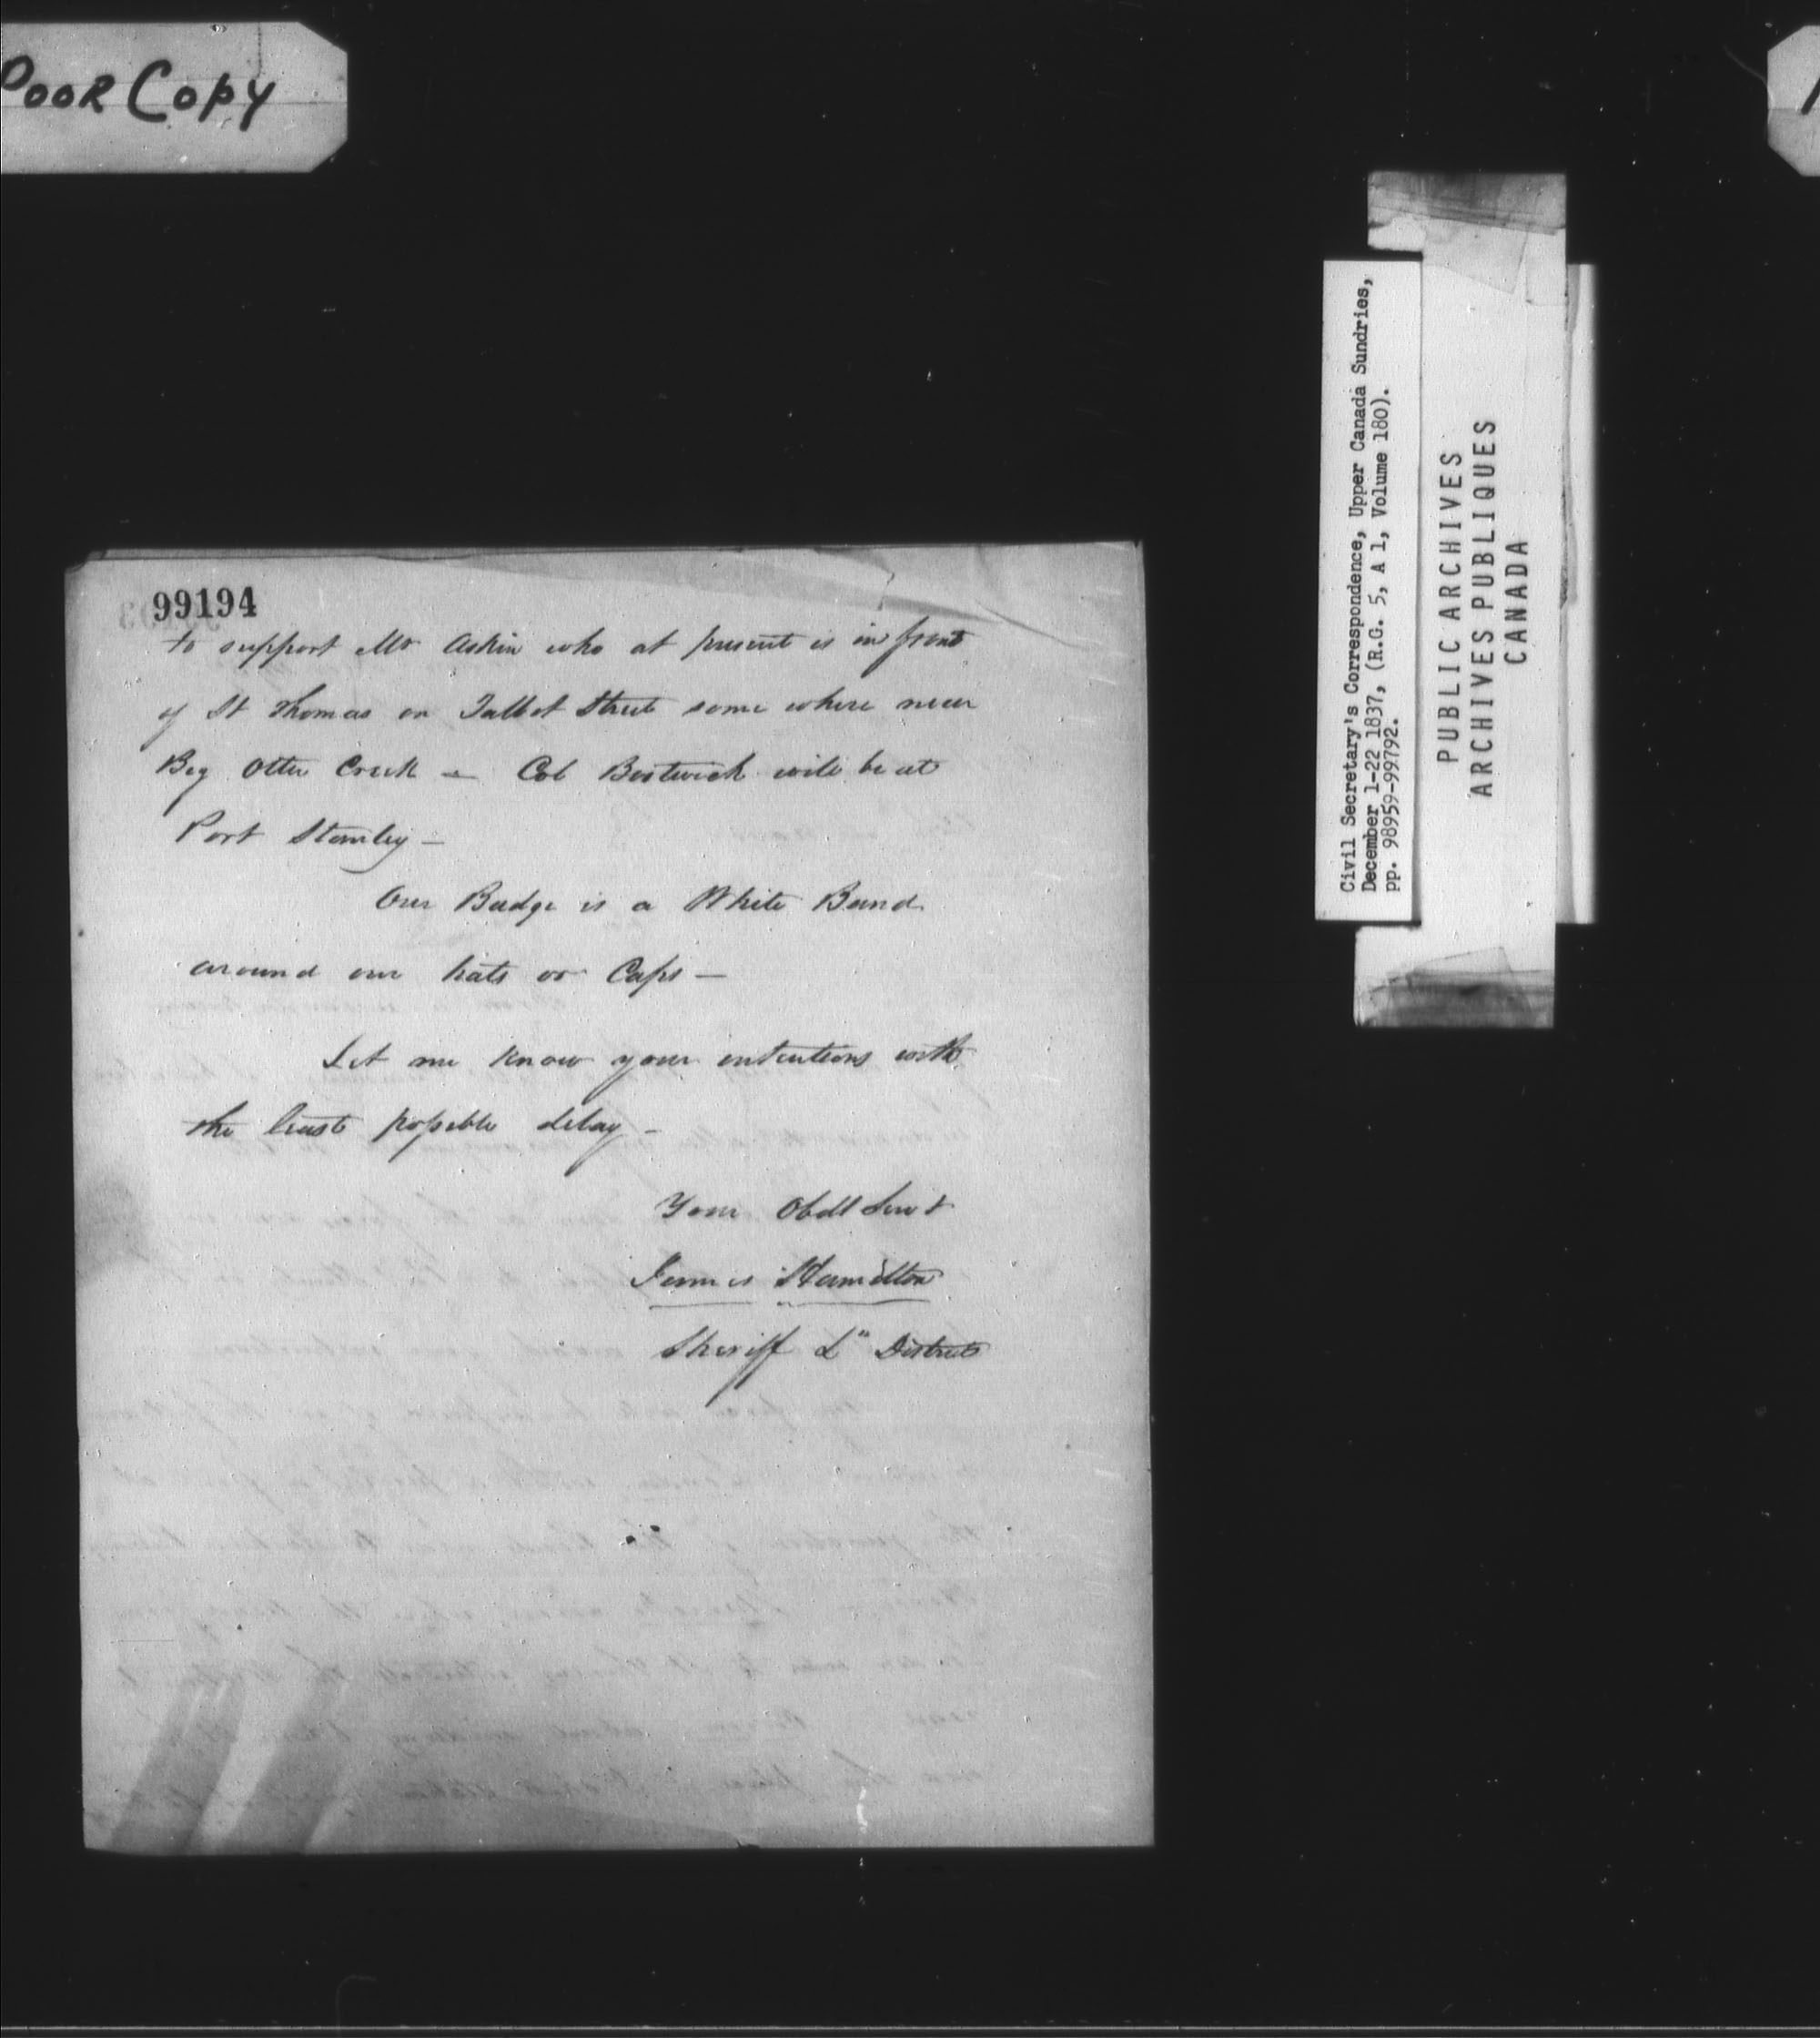 Poor Copy
99194
to support Mr Askin who at present is in front
of St Thomas on Talbot Street some where near
Big Otter Creek – Col Bostwick will be at
Port Stanley –
Our Badge is a White Band
around our hats or Caps –
Let me know your intentions with
the least possible delay –
Your Obdt Servt
James Hamilton
Sheriff Ln District
Civil Secretary's Correspondence, Upper Canada Sundries,
December 1-22 1837, (R.G. 5, A 1, Volume 180).
pp. 98959-99792.
PUBLIC ARCHIVES
ARCHIVES PUBLIQUES
CANADA